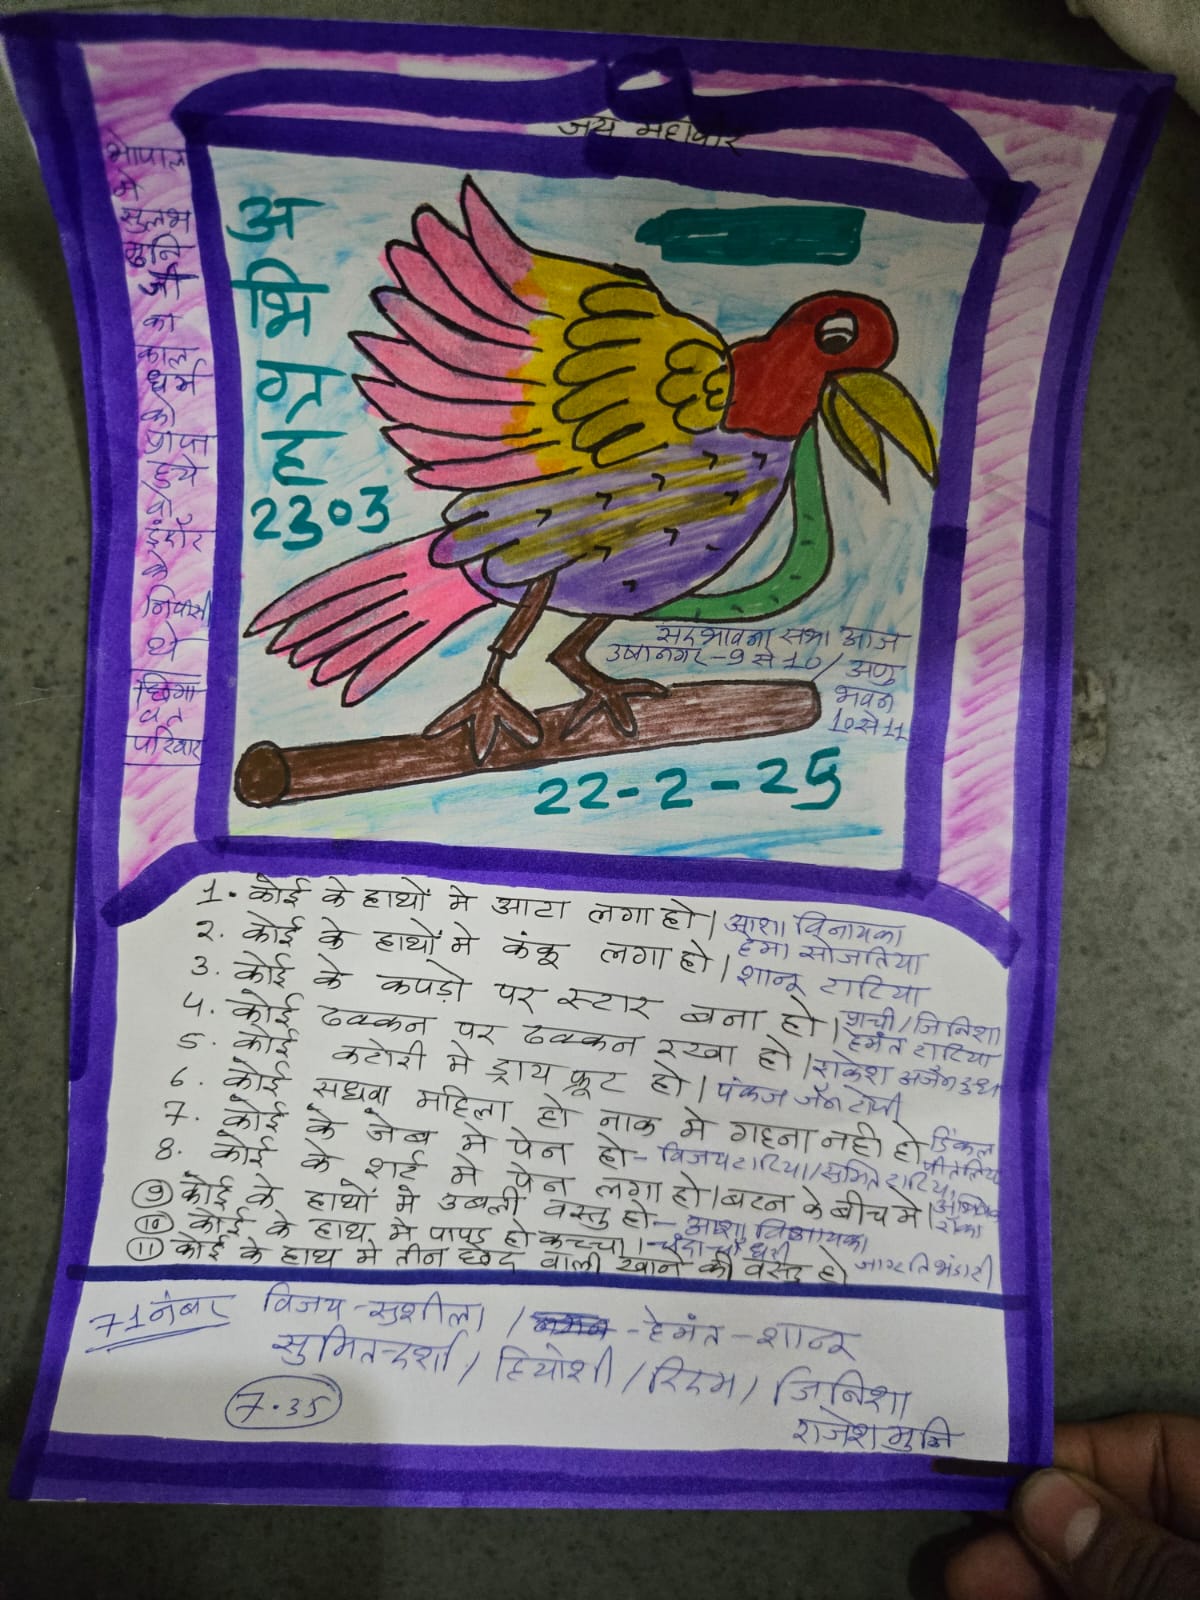 जय महावीर
भोपाल
मे
सुलभ
मुनि
जी
का
काल
धर्म
को
प्राप्त
हुये
वो
इंदौर
के
निवासी
थे
छिंगा
वत
परिवार
अ
भि
ग्र
ह
2303
सदभावना सभा आज
उषानगर-9 से 10/ अणु
भवन
10 से 11
22-2-25
1. कोई के हाथों मे आटा लगा हो| आशा विनायका
2. कोई के हाथों मे कंकू लगा हो| हेमा सोजतिया
3. कोई के कपड़ो पर स्टार बना हो| शानू टाटिया
4. कोई ढक्कन पर ढक्कन रखा हो| शची/जिनिशा
हेमंत टाटिया
5. कोई कटोरी मे ड्राय फ्रूट हो| राकेश
पंकज जैन
6. कोई सधवा महिला हो नाक मे गहना नही हो डिंकल
पीतलिया
7. कोई के जेब मे पेन हो- विजय टाटिया/सुमित टाटिया
8. कोई के शर्ट मे पेन लगा हो| बटन के बीच मे|
9 कोई के हाथों मे उबली वस्तु हो- आशा विनायका
10 कोई के हाथ मे पापड़ हो कच्चा|
11 कोई के हाथ मे तीन छेद वाली खाने की वस्तु हो जागृति भंडारी
71 नंबर विजय-सुशीला / -हेमंत-शानू
सुमित-दर्शा/ हियांशी / रिदम/ जिनिशा
7.35
राजेश मुनि